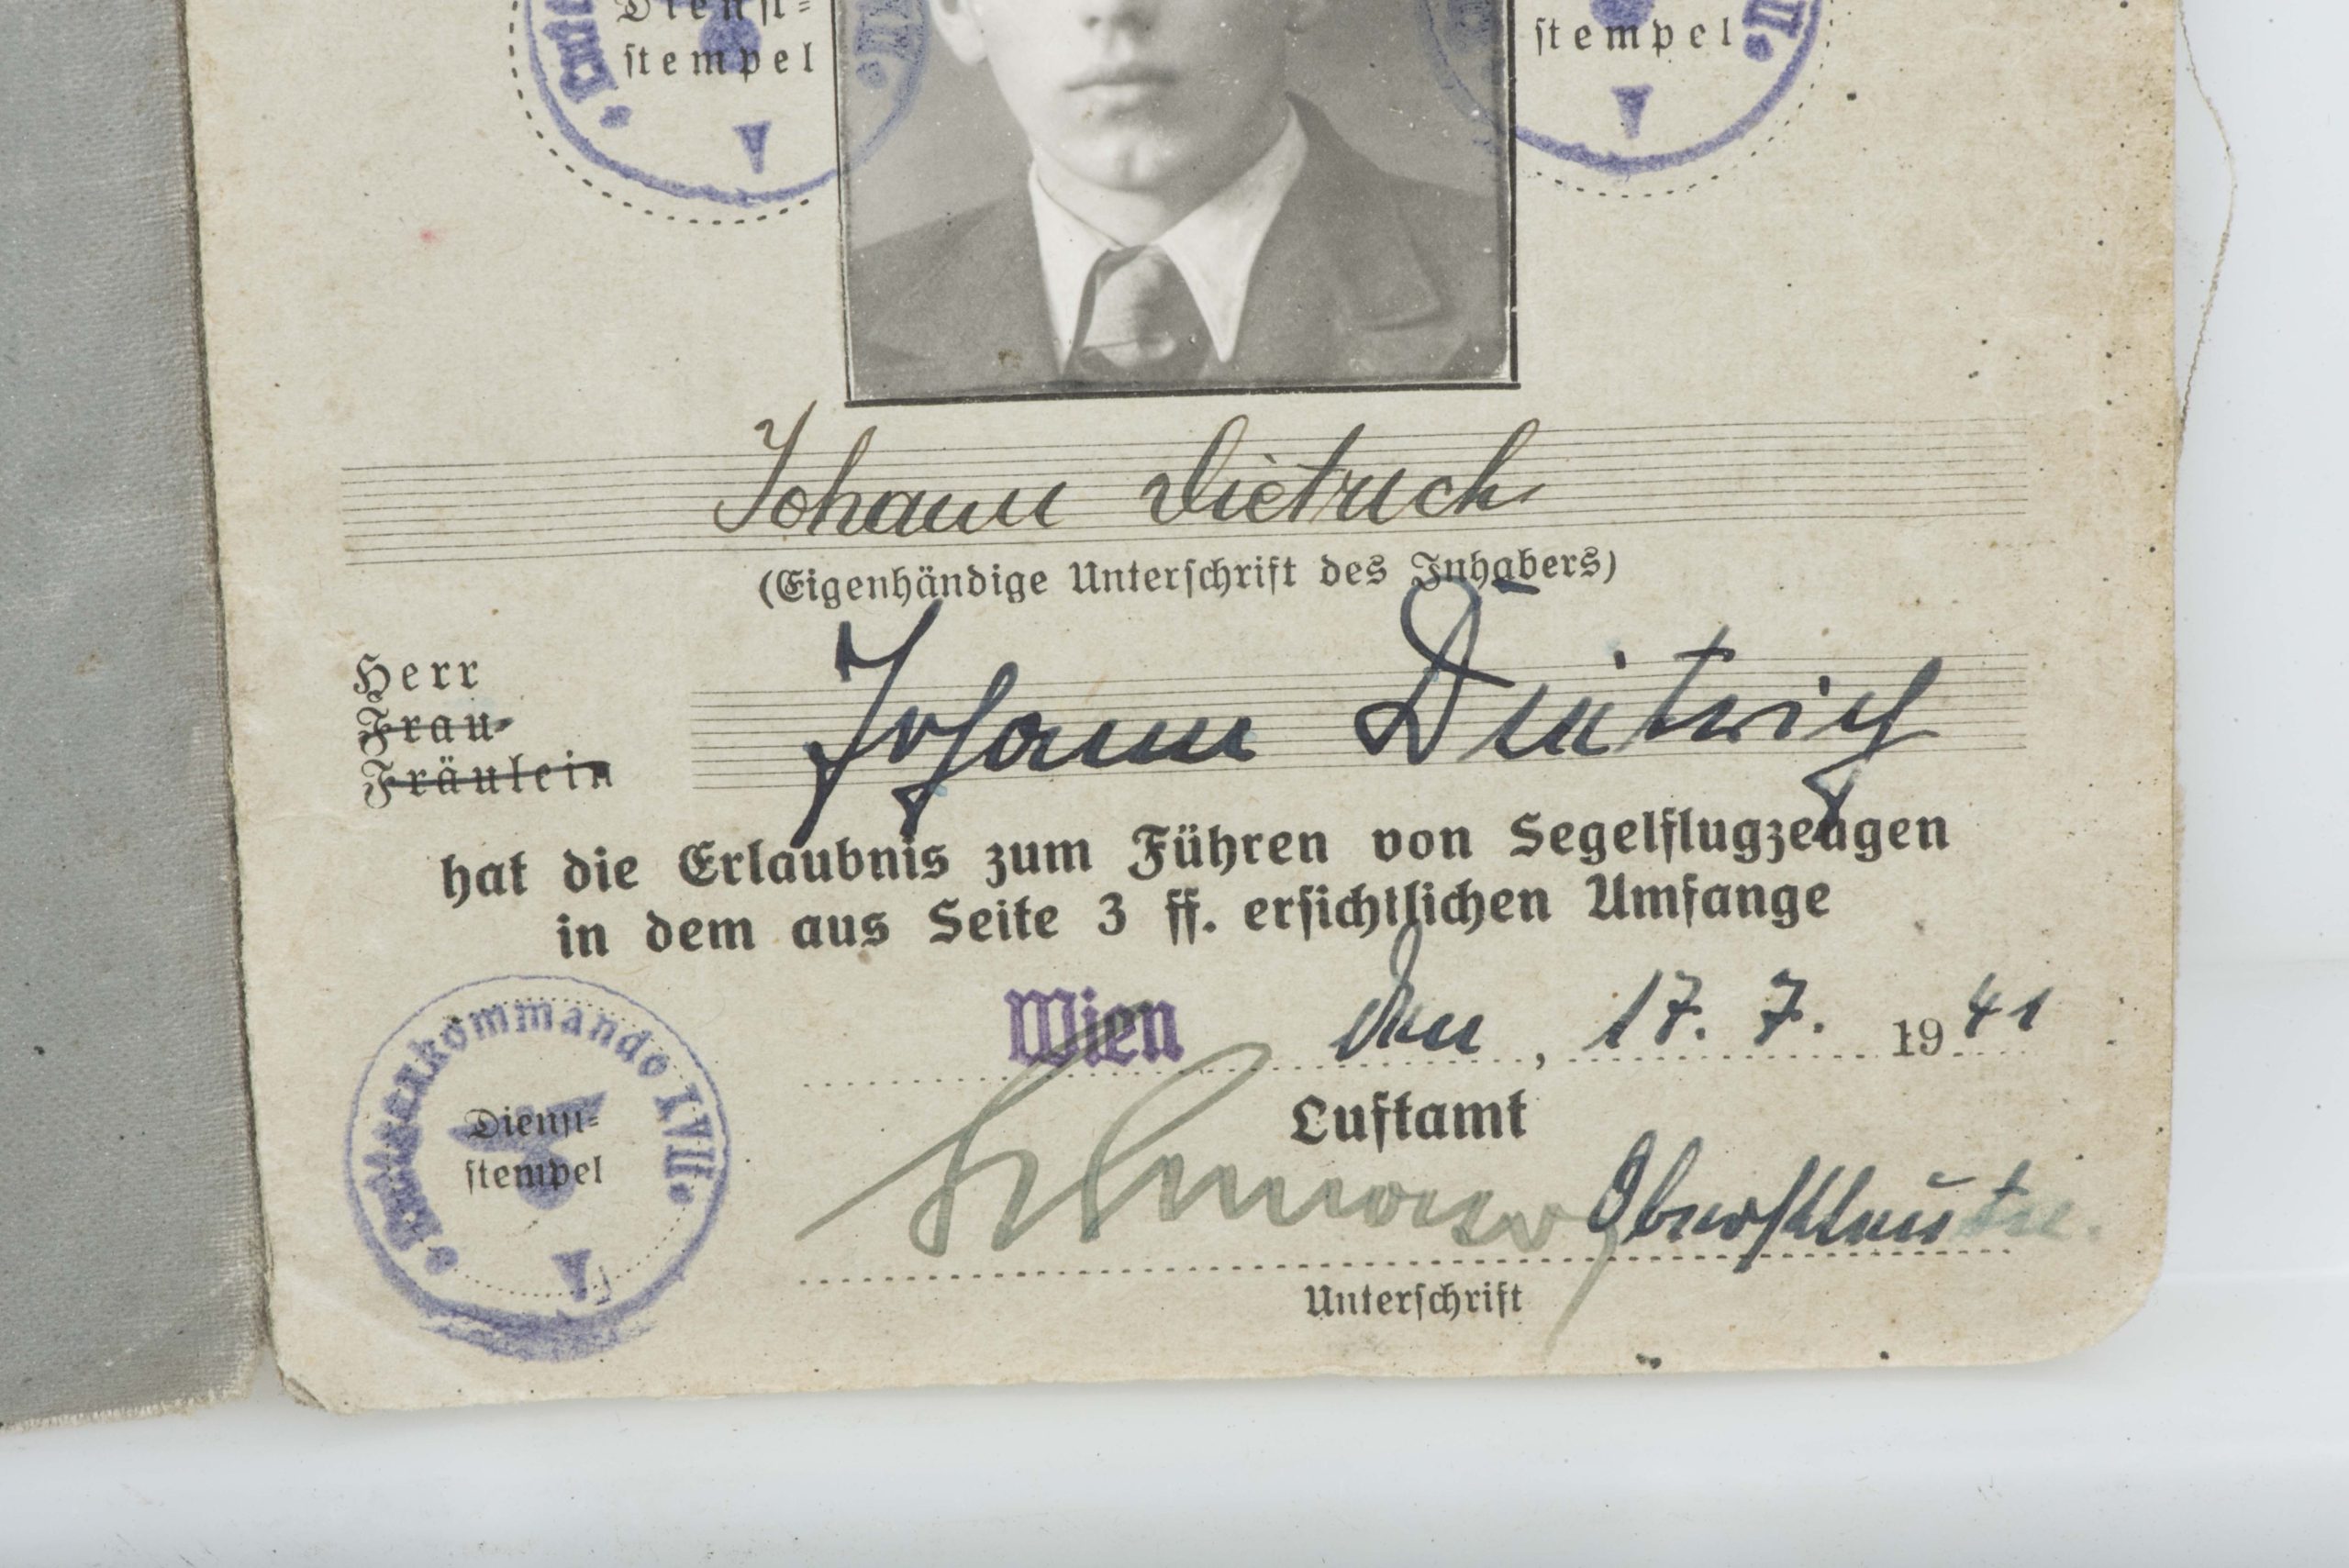 Dienst=
stempel
stempel
Johann Dietrich
(Eigenhändige Unterschrift des Inhabers)
Herr
Frau
Fräulein
Johann Dietrich
hat die Erlaubnis zum Führen von Segelflugzeugen
in dem aus Seite 3 ff. ersichtlichen Umfange
Wien den, 17. 7. 1941
Luftamt
Dienst=
stempel
Unterschrift